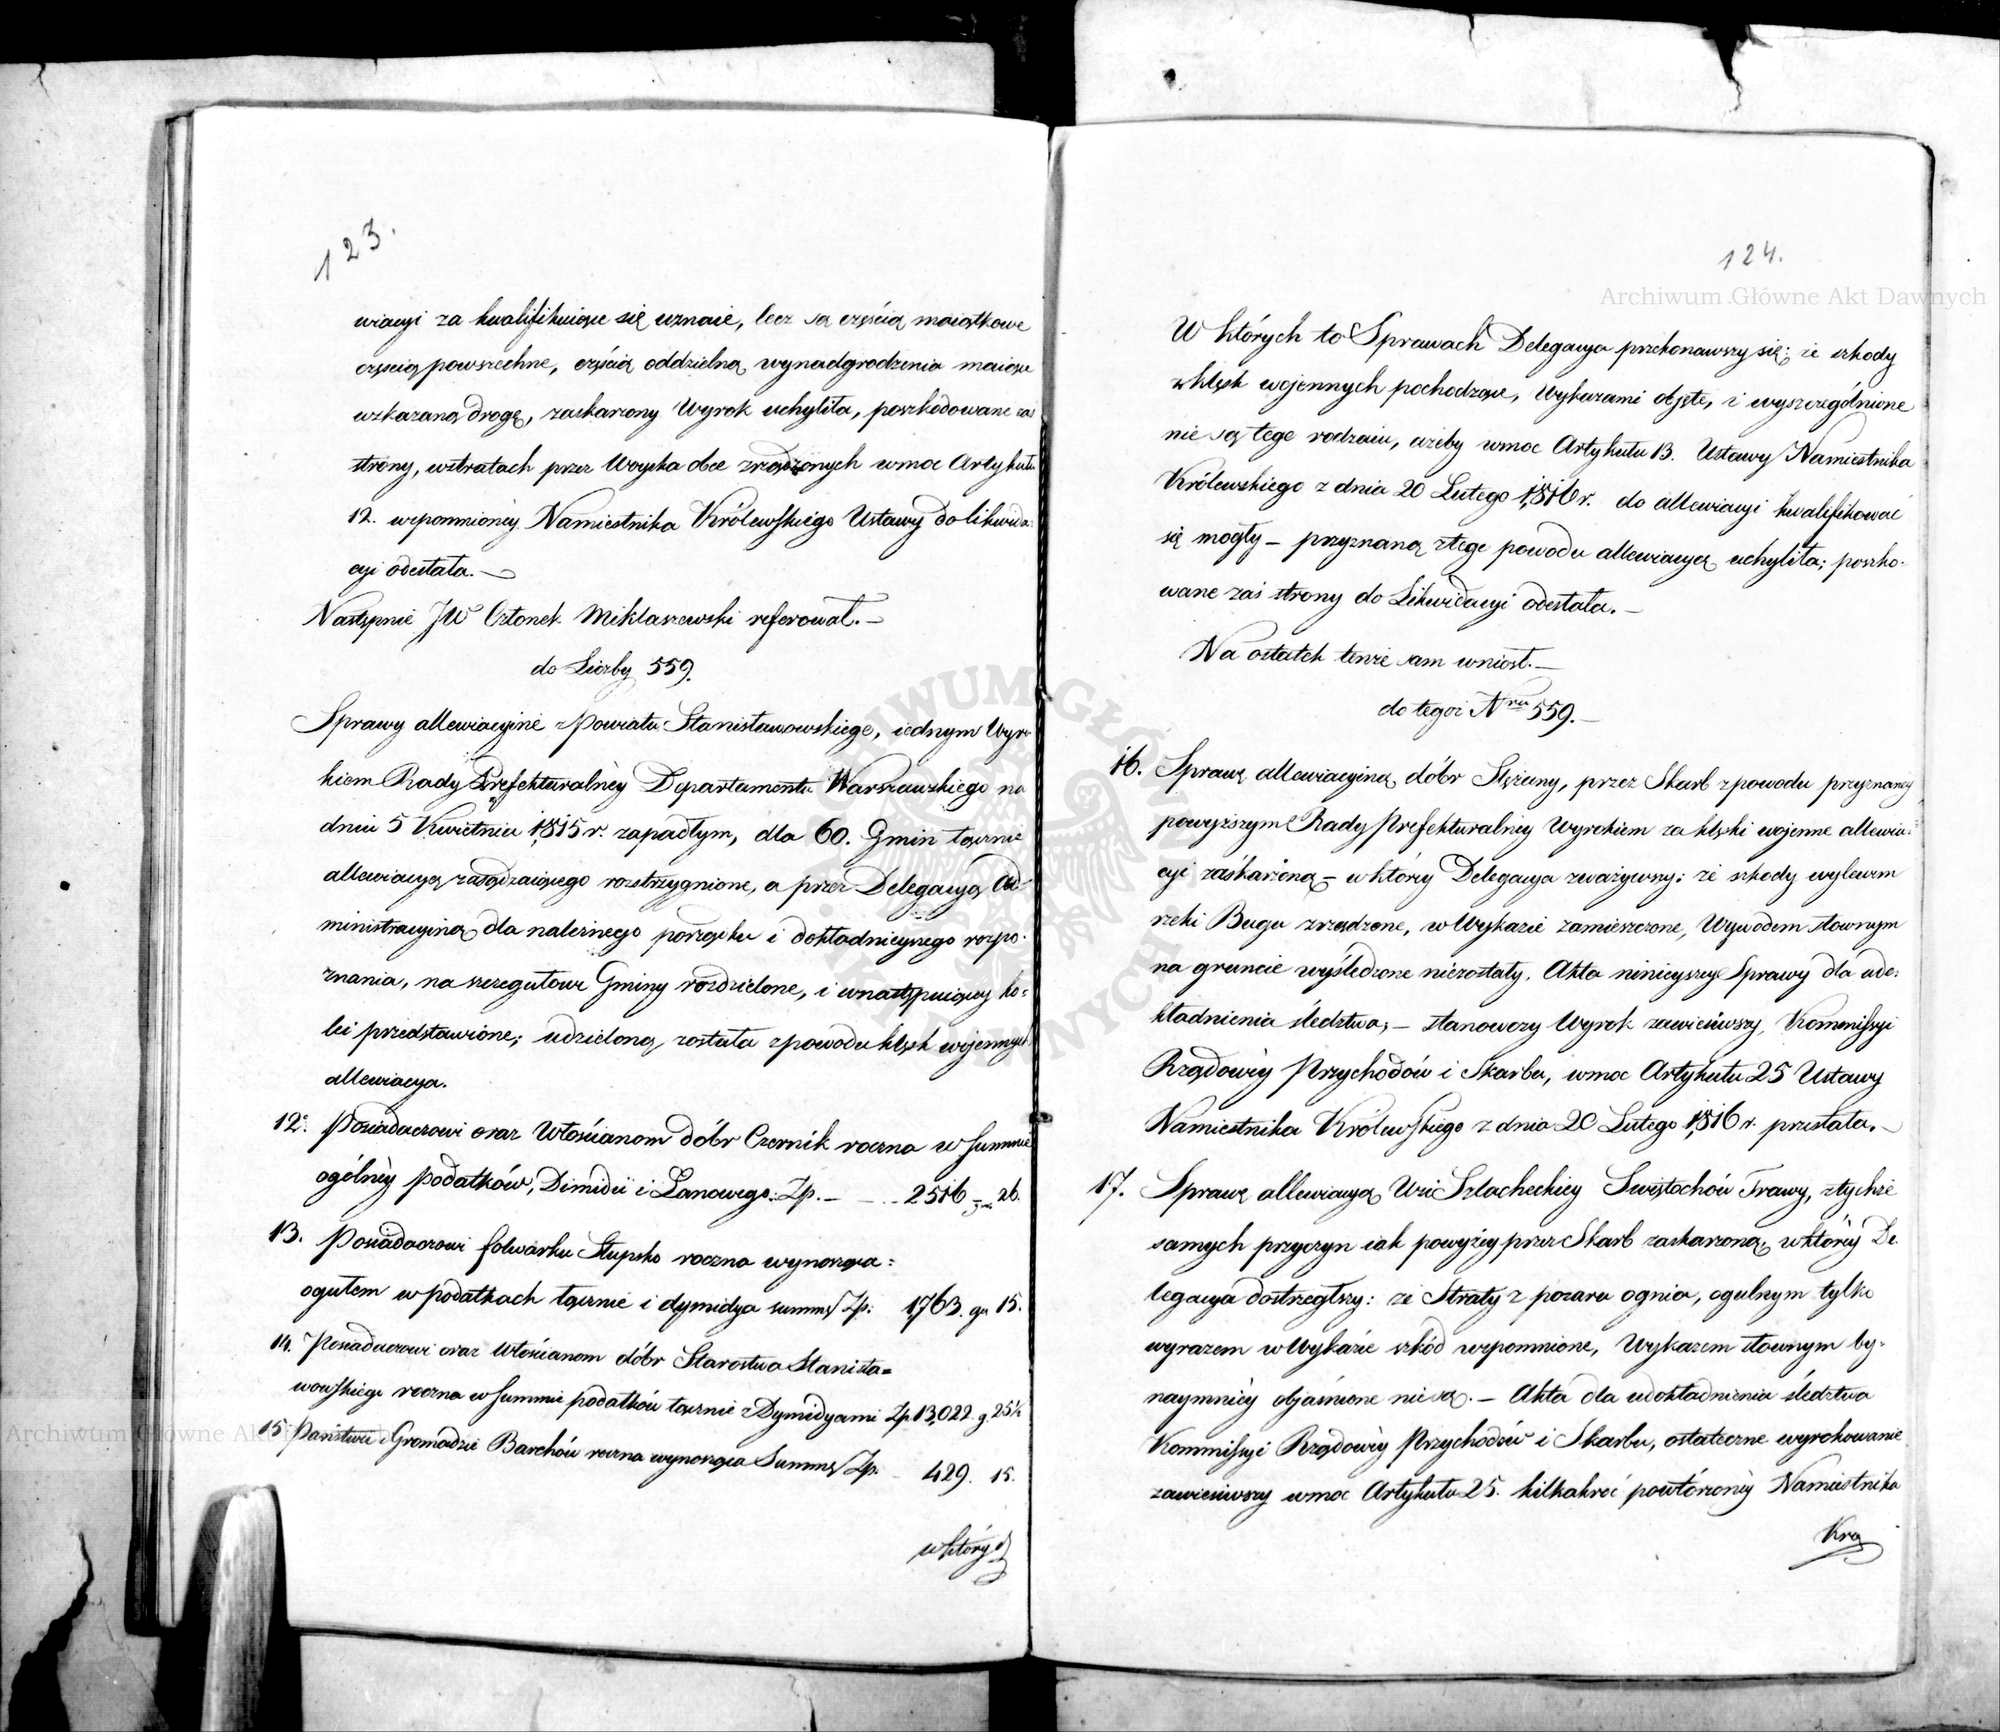 123.
wiacyi za kwalifikuiące się uznaie, lecz są częścią maiątkowe
częscią powszechne, częścią oddzielną wynadgrodzenia maiące
wzkazaną drogę, zaskarzony Wyrok uchyliła, poszkodowane zaś
strony, wstratach przez Woyska obce zrządzonych wmoc Artykułu
12. wspomnioney Namiestnika Królewskiego Ustawy do likwida=
cyi odesłała.—
Następnie JW Członek Miklaszewski referował.—
do Liczby 559.
Sprawy allewiacyine z Powiatu Stanisławowskiego, iednym Wyro
kiem Rady Prefekturalney Departamentu Warszawskiego na
dniu 5 Kwietnia 1815 r. zapadłym, dla 60. Gmin łącznie
allewiacyą zasądzaiącego rozstrzygnione, a przez Delegacyą Ad=
ministracyiną dla należnego porządku i dokładnieyszego rozpo=
znania, na szczegułowe Gminy rozdzielone, i wnastępuiącey ko=
lei przedstawione; udzieloną została zpowodu klęsk wojennych
allewiacya.
12. Posiadaczowi oraz Włościanom dóbr Czernik roczna w Summie
ogólney podatków, Dimidii i Łanowego. Zp. — — .. 2516 gr. 26.
13. Posiadaczowi folwarku Słupsko roczna wynosząca=
ogułem w podatkach łącznie i dymidya summę Zp: 1,763. gr. 15.
14. Posiadaczowi oraz Włościanom dóbr Starostwa Stanisła=
wowskiego roczna w Summie podatków łącznie z Dymidyami Zp 13,022. g. 25½
15 Państwu i Gromadzie Barchów roczna wynosząca Summę Zp. 429. 15.
w których
124.
Archiwum Główne Akt Dawnych
W których to Sprawach Delegacya przekonawszy się: że szkody
z klęsk wojennych pochodzące, Wykazami objęte, i wyszczególnione
nie są tego rodzaiu, ażeby wmoc Artykułu 13. Ustawy Namiestnika
Królewskiego z dnia 20 Lutego 1816 r. do allewiacyi kwalifikować
się mogły — przyznaną ztego powodu allewiacyą uchyliła; poszko=
wane zaś strony do Likwidacyi odesłała.—
Na ostatek tenże sam wniosł.—
do tegoż Nru 559.—
16. Sprawę allewiacyiną dóbr Slężany, przez Skarb zpowodu przyznaney
powyższym Rady Prefekturalney Wyrokiem za klęski wojenne allewia=
cyi zaskarżoną — w którey Delegacya zważywszy: że szkody wylewem
rzeki Bugu zrządzone, w Wykazie zamieszczone, Wywodem słownym
na gruncie wyśledzone niezostały. Akta ninieyszey Sprawy dla udo=
kładnienia śledztwa; — stanowczy Wyrok zawiesiwszy, Kommissyi
Rządowey Przychodów i Skarbu, wmoc Artykułu 25 Ustawy
Namiestnika Królewskiego z dnia 20 Lutego 1816 r. przesłała.—
17. Sprawę allewiacyą Wsi Szlacheckiey Swiętochów Trawy, ztychże
samych przyczyn iak powyżey przez Skarb zaskarzoną; wktórey De=
legacya dostrzegłszy: że Straty z pozaru ognia, ogulnym tylko
wyrazem w Wykazie szkód wspomnione, Wykazem słownym by=
naymniey objaśnione nie są.— Akta dla udokładnienia śledztwa
Kommissyi Rządowey Przychodów i Skarbu, ostateczne wyrokowanie
zawiesiwszy wmoc Artykułu 25. kilkakroć powtórzoney Namiestnika
Kró